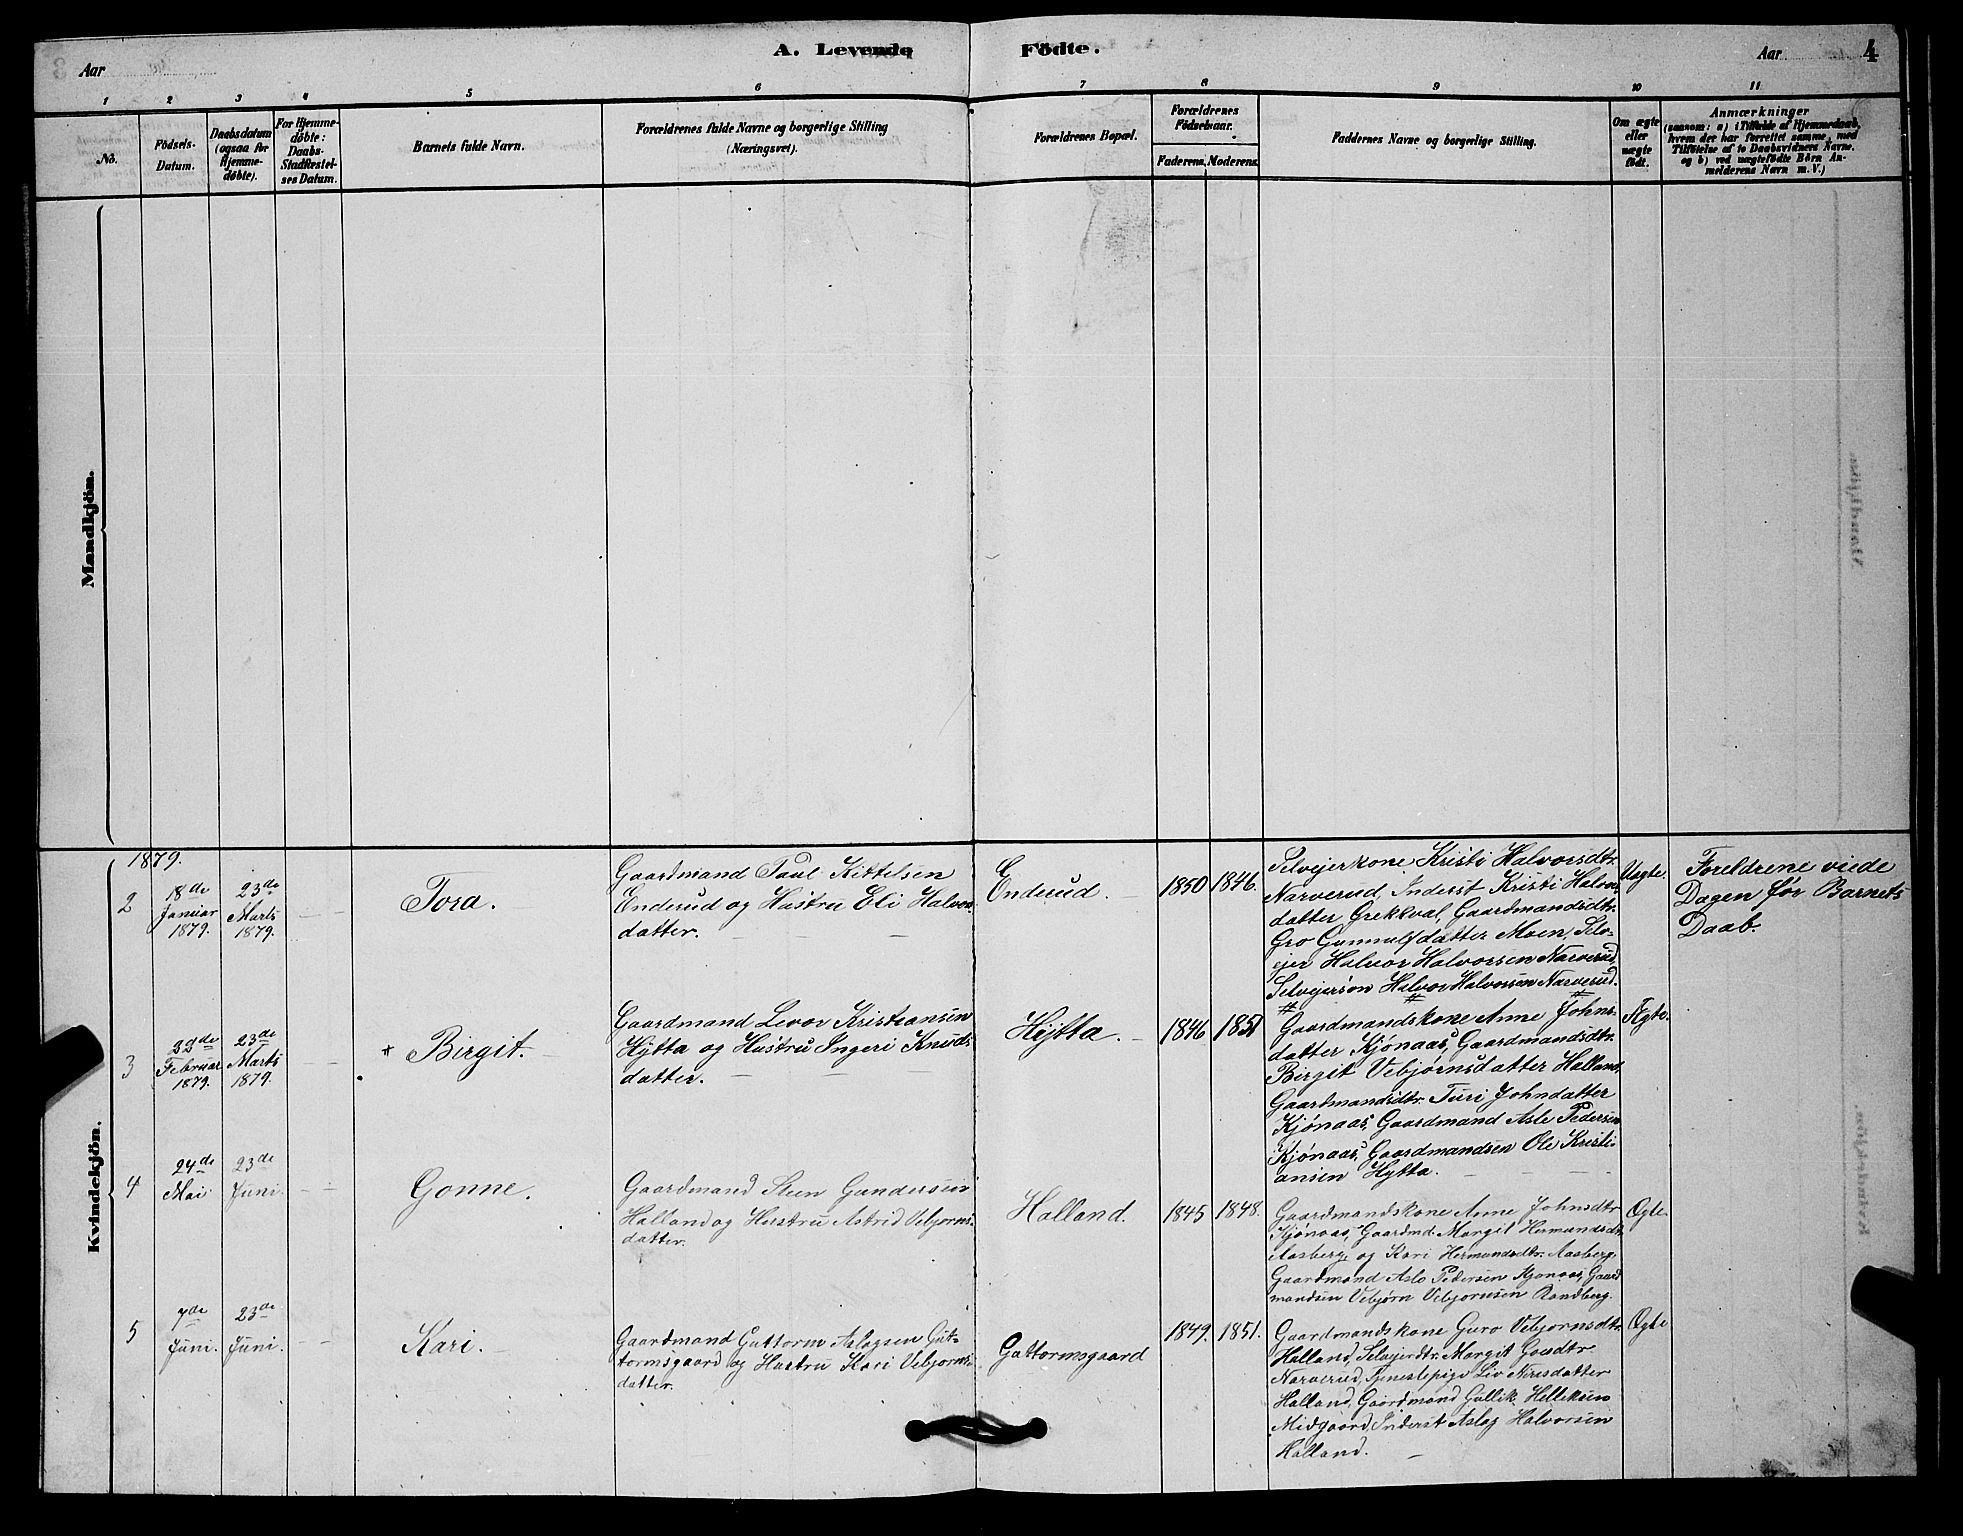 A. Levende Födte.
Aar
Aar
4
1 2 3 4 5 6 7 8 9 10 11
No.
Födsels-
Datum.
Daabsdatum
(ogsaa for
Hjemme-
döbte).
For Hjemme-
døbte:
Daabs-
Stadfæstel-
ses Datum.
Barnets fulde Navn.
Forældrenes fulde Navne og borgerlige Stilling
(Næringsvei).
Forældrenes Bopæl.
Forældrenes
Födselsaar.
Faderens. Moderens.
Faddernes Navne og borgerlige Stilling.
Om ægte
eller
uægte
født.
Anmærkninger
(saasom: a) i Tilfælde af Hjemmedaab,
hvem der har forrettet samme, med
Tilföielse af to Daabsvidners Navne.
og b) ved uægtefödte Börn An-
melderens Navn m. V.)
Mandkjön.
Kvindekjön.
1879.
2
18de
Januar
1879.
23de
Marts
1879.
Tora.
Gaardmand Paul Kittelsen
Enderud og Hustru Eli Halvors
datter.
Enderud.
1850 1846.
Selvejerkone Kristi Halvorsdtr.
Narverud, Inderst Kristi Halvors
datter Grekkval, Gaardmandsdtr.
Gro Gunnulfdatter Moen, Selv-
ejer Halvor Halvorssen Narverud,
Selvejersøn Halvor Halvorssen Narverud.
Uegte.
Foreldrene viede
Dagen før Barnets
Daab.
3
22de
Februar
1879.
23de
Marts
1879.
Birgit.
Gaardmand Levor Kristiansen
Hytta og Hustru Ingeri Knuds
datter.
Hytta.
1846 1851
Gaardmandskone Anne Johns
datter Kjønaas, Gaardmandsdtr.
Birgit Vebjørnsdatter Halland,
Gaardmandsdtr. Turi Johndatter
Kjønaas, Gaardmand Asle Pedersen
Kjønaas, Gaardmandsen Ole Kristi-
ansen Hytta.
Ægte.
4
24de
Mai
23de
Juni.
Gonne.
Gaardmand Steen Gundersen
Halland og Hustru Astrid Vebjorns-
datter.
Halland.
1845 1848.
Gaardmandskone Anne Johnsdtr
Kjønaas, Gaardmd. Margit Hermandsdt.
Aasberg og Kari Hermandsdtr. Aasberg,
Gaardmand Aslo Pedersen Kjonaas, Gaard
mandsen Vebjørn Vebjornsen Randberg.
Ægte
5
7de
Juni.
23de
Juni.
Kari.
Gaardmand Guttorm Aslagsen Gut-
tormsgaard og Hustru Kari Vebjorns-
datter.
Guttormsgaard
1849. 1851.
Gaardmandskone Guro Vebjornsdtr.
Halland, Selvejerdtr. Margit Goudtr
Narverud, Tjenestepige Liv Nirisdatter
Halland, Gaardmand Gullik Helleksen
Midgaard, Inderst Aslag Halvorsen
Halland.
Ægte